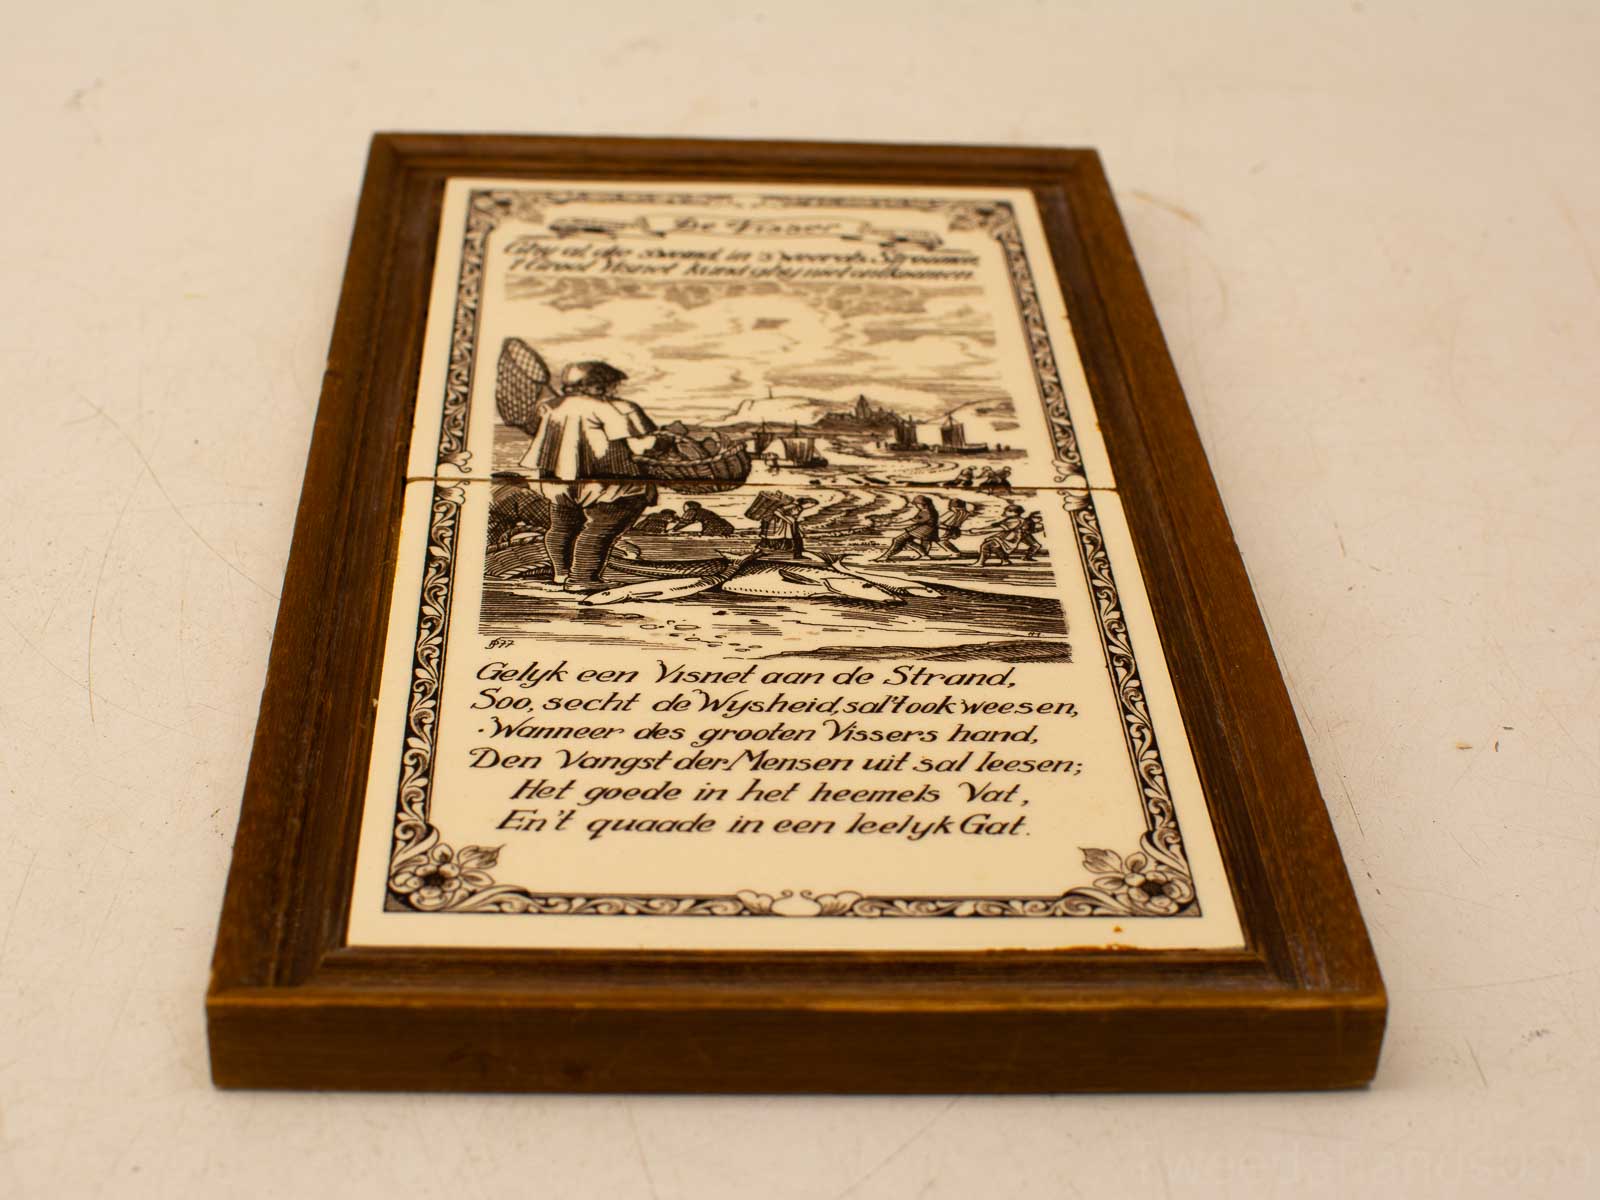 De Visser
Ghy al die swemt in 's werelds Stroomen
't Groot Visnet kunt ghy niet ontkoomen
77
Gelyk een Visnet aan de Strand,
Soo, secht de Wysheid, sal't ook weesen,
Wanneer des grooten Vissers hand,
Den Vangst der Mensen uit sal leesen;
Het goede in het heemels Vat,
En't quaade in een leelyk Gat.